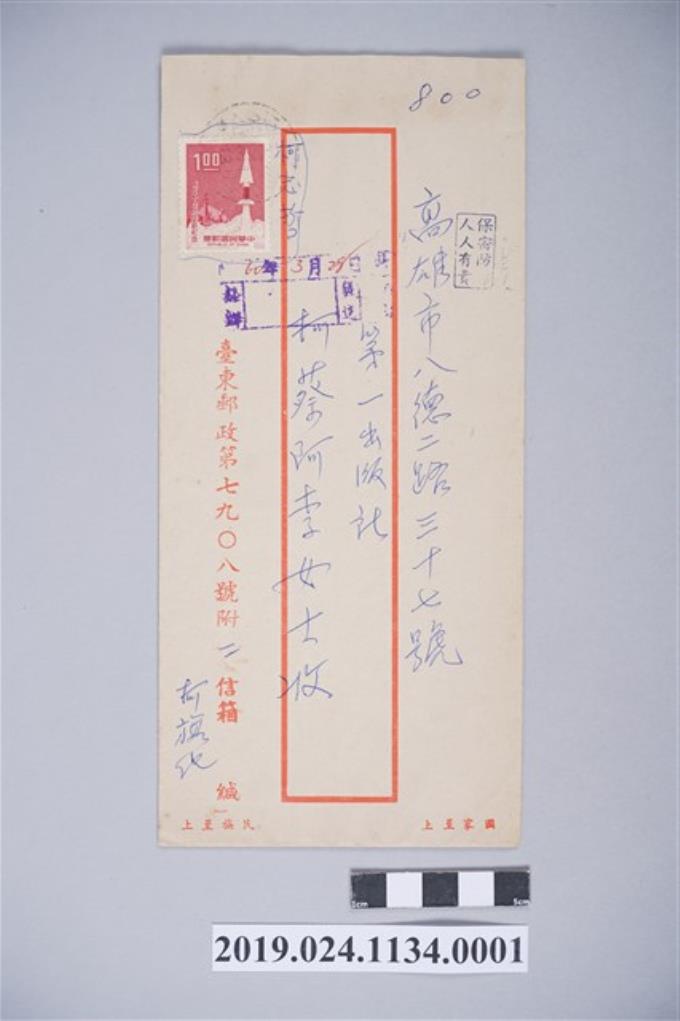 800
保密防
人人有責
高雄市八德二路三十七號
第一出版社
柯蔡阿李女士收
柯志哲
1.00
中華民國郵票
REPUBLIC OF CHINA
60年3月29日
臺東郵政第七九〇八號附二信箱 緘
柯旗化
國家至上
民族至上
5cm
2019.024.1134.0001